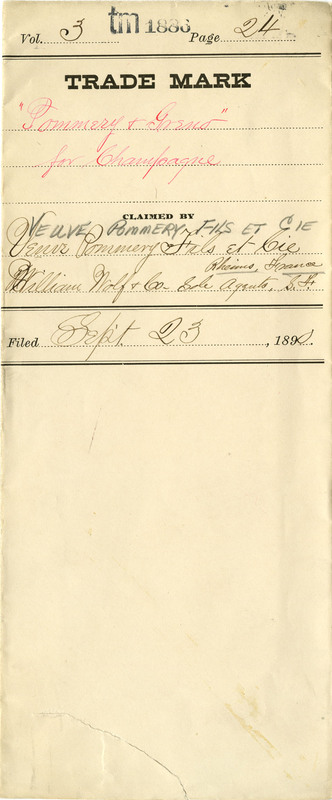 Vol. 3 tm 1886 Page 24
TRADE MARK
"Pommery & Greno"
for Champagne
CLAIMED BY
VEUVE POMMERY, FILS ET CIE
Veuve Pommery Fils et Cie
Rheims, France
William Wolf & Co Sole Agents, S.F.
Filed Sept. 23, 1890.